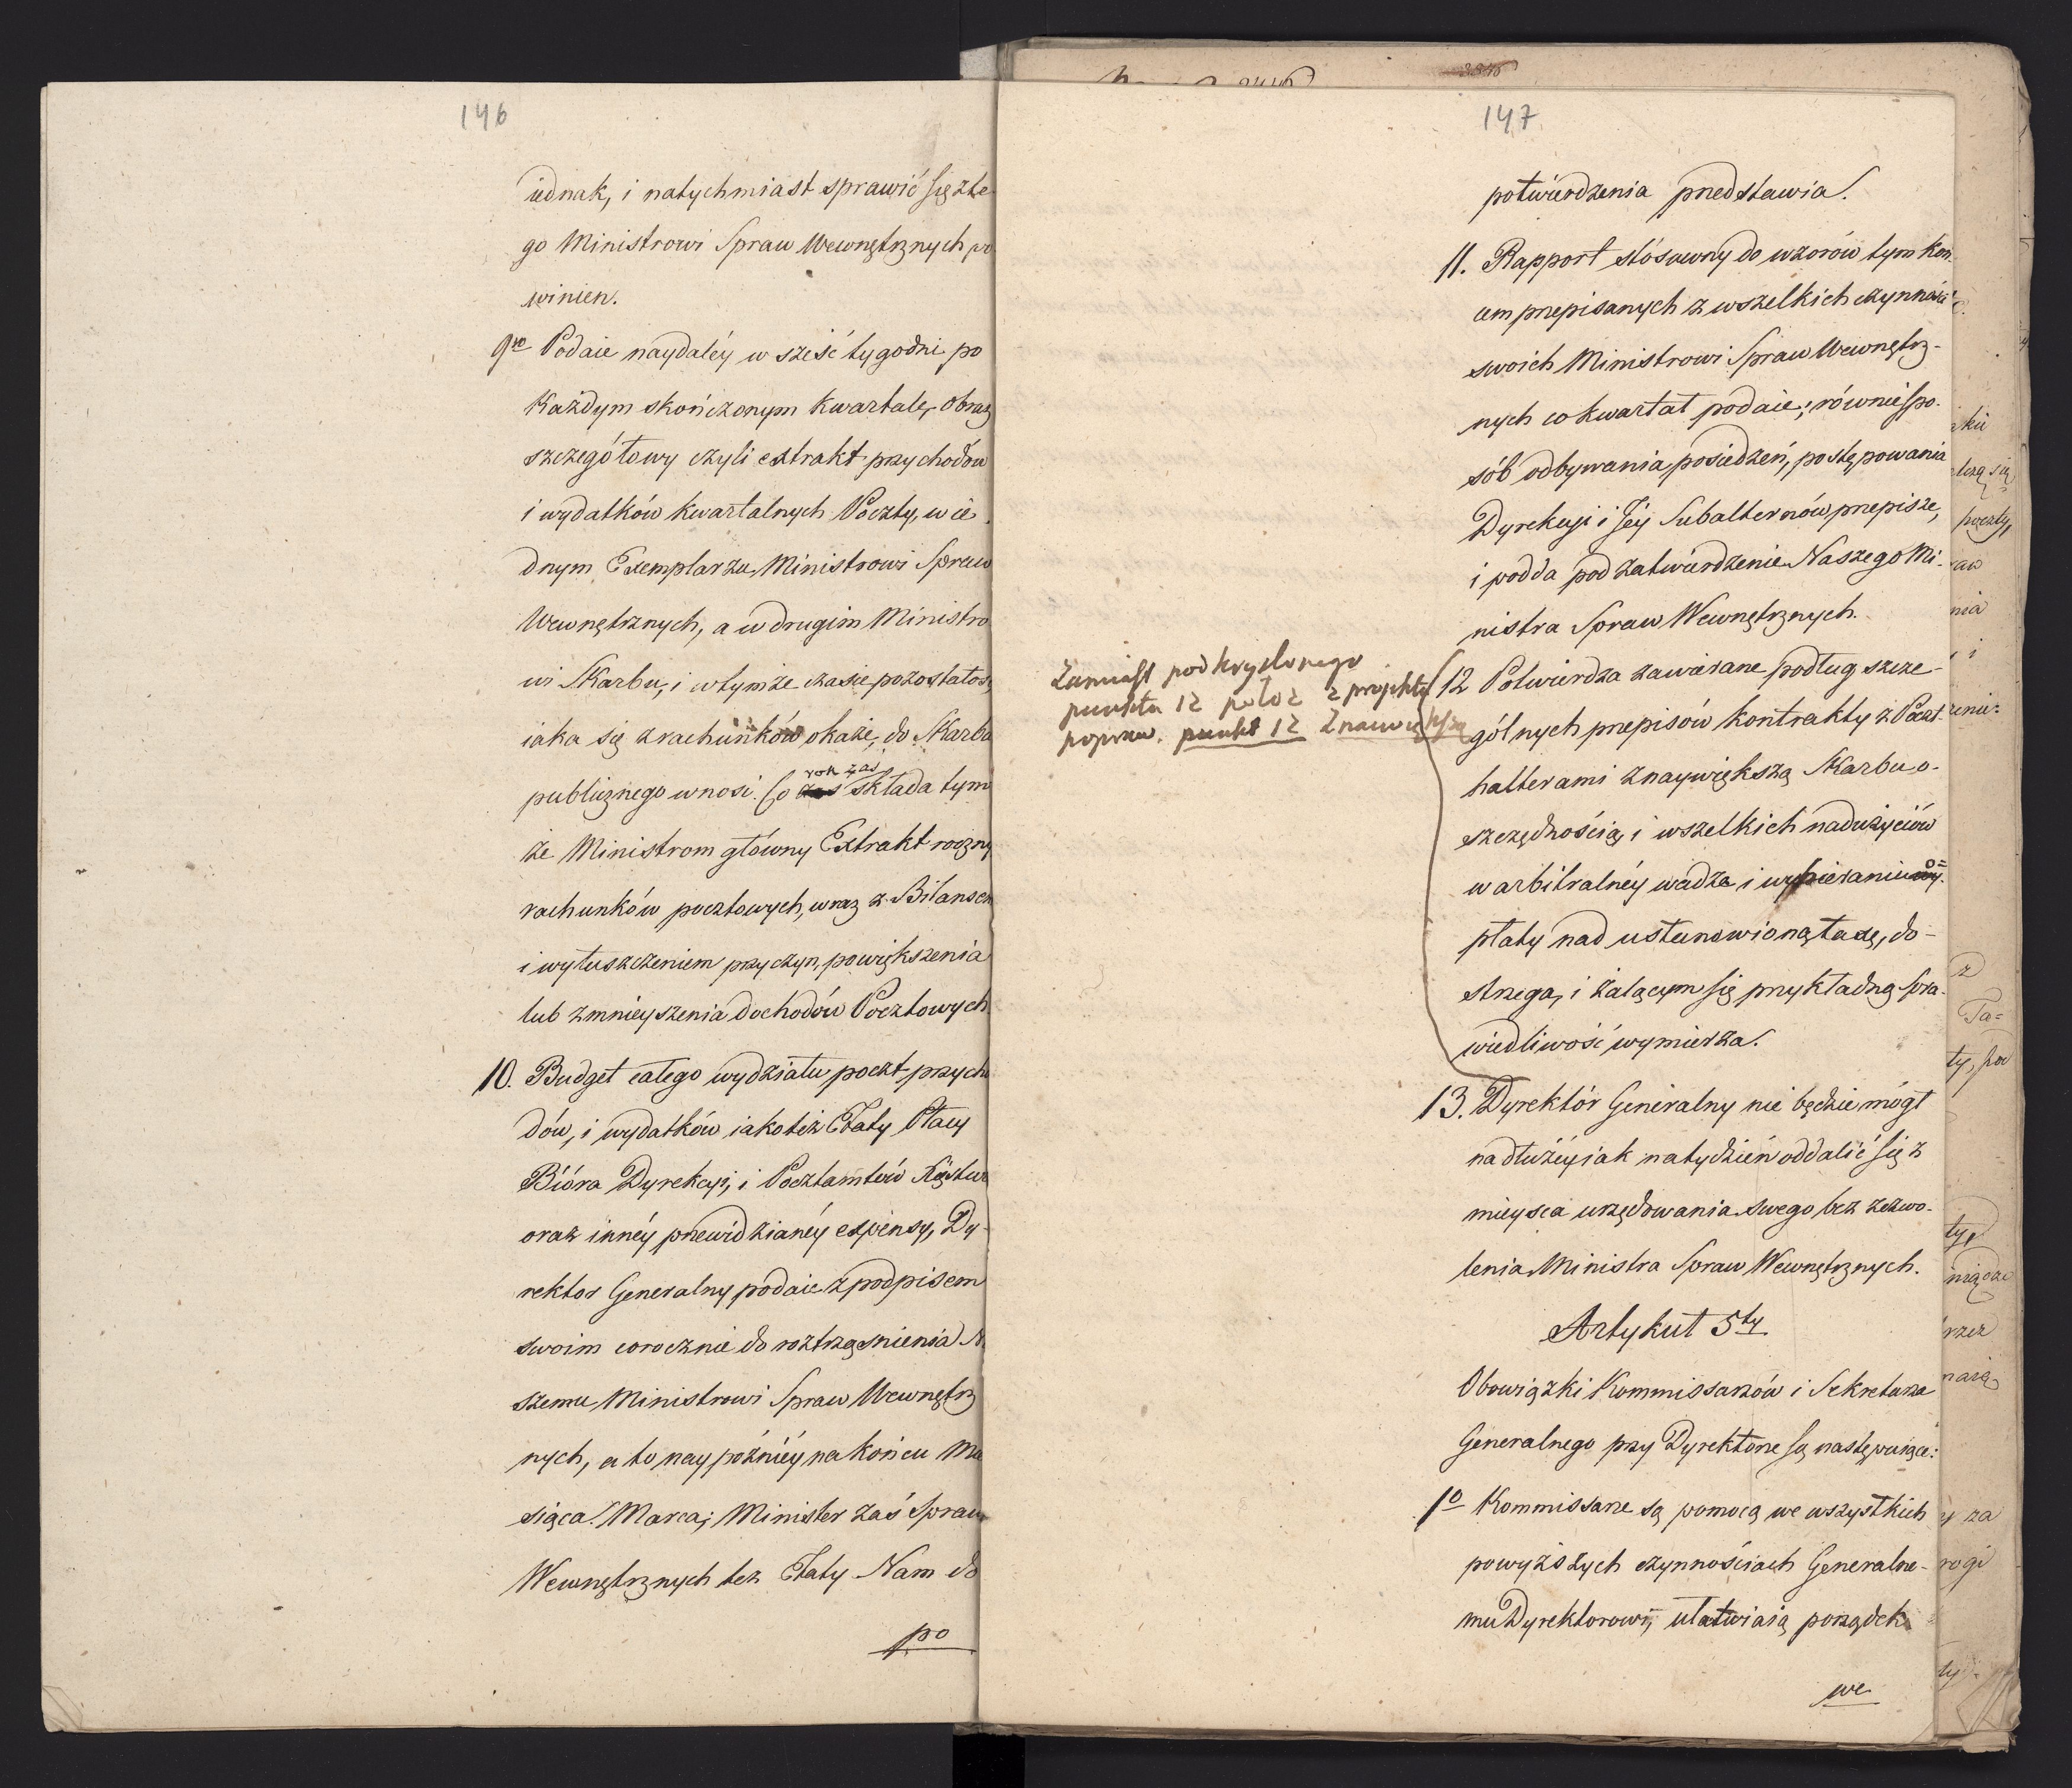 146
iednak, i natychmiast sprawić się z te
go Ministrowi Spraw Wewnętrznych po
winien.
9no Podaie naydaléy w sześć tygodni po
każdym skończonym kwartale, obraz
szczegółowy czyli extrakt przychodów
i wydatków kwartalnych Poczty, w ie
dnym Exemplarzu Ministrowi Spraw
Wewnętrznych, a w drugim Ministro
wi Skarbu, i w tymże czasie pozostałość
iaka się z rachunków okaże, do Skarbu
publicznego wnosi. Co rok zaś składa tym
że Ministrom główny Extrakt roczny
rachunków pocztowych, wraz z Bilansem
i wyłuszczeniem przyczyn, powiększenia
lub zmnieyszenia dochodów Pocztowych
10. Budget całego wydziału poczt przycho
dów, i wydatków iako też Etaty Płacy
Bióra Dyrekcyi, i Pocztamtów Xięstwa
oraz innéy przewidzianéy expensy, Dy-
rektor Generalny podaie z podpisem
swoim corocznie do roztrząśnienia Na
szemu Ministrowi Spraw Wewnętrz
nych, a to naypóźniéy na końcu Mie
siąca Marca; Minister zaś Spraw
Wewnętrznych też Etaty Nam do
po
147
potwierdzenia przedstawia.
11. Rapport stósowny do wzorów tym koń-
cem przepisanych z wszelkich czynności
swoich Ministrowi Spraw Wewnętrz-
nych co kwartał podaie; równie spo-
sób odbywania posiedzeń, postępowania
Dyrekcyi i Jéy Subalternów przepisze,
i podda pod zatwierdzenie Naszego Mi-
nistra Spraw Wewnętrznych.
Zamiast podkryslonego
punktu 12 połoz z projektu
popraw. punkt 12 Znawiększą
12 Potwierdza zawierane podług szcze-
gólnych przepisów kontrakty z Poczt-
halterami z naywiększą Skarbu o-
szczędnością, i wszelkich nadużyciów
w arbitralnéy wadze i wybieraniu o=
płaty nad ustanowioną taxę, do-
strzega, i żalącym się przykładną spra-
wiedliwość wymierza.
13. Dyrektór Generalny nie będzie mógł
na dłużéy iak na tydzień oddalić się z
mieysca urzędowania swego bez zezwo-
lenia Ministra Spraw Wewnętrznych.
Artykuł 5ty
Obowiązki Kommissarzów i Sekretarza
Generalnego przy Dyrektorze są następuiące:
1o Kommissarze są pomocą we wszystkich
powyższych czynnościach Generalne-
mu Dyrektorowi, ułatwiaią porządek
we